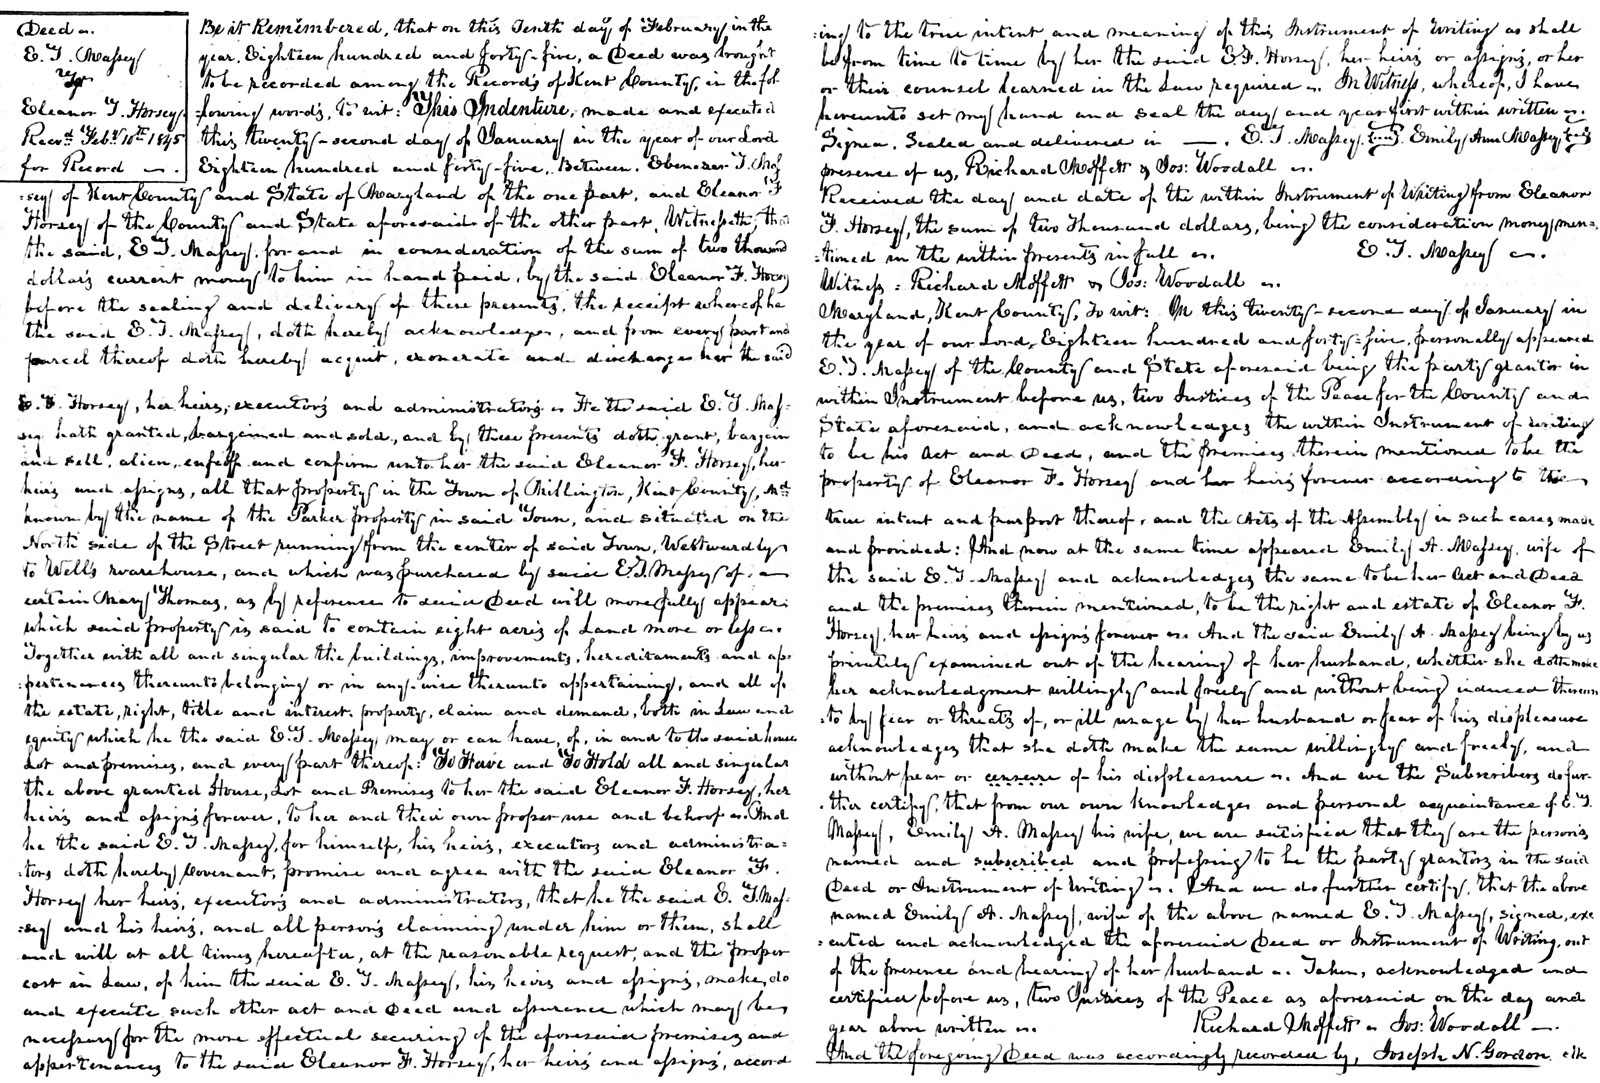 Deed ~.
E. T. Massey
to
Eleanor F. Horsey
Recd. Feby 10th 1845
for Record ~.
Be it Remembered, that on this Tenth day of February in the
year, Eighteen hundred and forty-five, a Deed was brought
to be recorded among the Records of Kent County, in the fol-
=lowing words, to wit: This Indenture, made and executed
this twenty-second day of January in the year of our Lord
Eighteen hundred and forty-five, Between Ebenezer T. Mas
=sey of Kent County and State of Maryland of the one part, and Eleanor F
Horsey of the County and State aforesaid of the other part, Witnesseth, that
the said, E. T. Massey, for and in consideration of the sum of two thousand
dollars current money to him in hand paid, by the said Eleanor F. Horsey
before the sealing and delivery of these presents, the receipt whereof he
the said E. T. Massey, doth hereby acknowledge, and from every part and
parcel thereof doth hereby acquit, exonerate and discharge her the said
E. F. Horsey, her heirs, executors and administrators ~ He the said E. T. Mas=
sey hath granted, bargained and sold, and by these presents doth grant, bargain
and sell, alien, enfeoff and confirm unto her the said Eleanor F. Horsey, her
heirs and assigns, all that property in the Town of Millington, Kent County, Md.
known by the name of the Parker property in said Town, and situated on the
North side of the Street running from the center of said Town, Westwardly
to Well's warehouse, and which was purchased by said E. T. Massey of a
certain Mary Thomas, as by reference to said Deed will more fully appear:
which said property is said to contain eight acres of Land more or less ~.
Together with all and singular the buildings, improvements, hereditaments and ap=
=pertenances thereunto belonging or in any-wise thereunto appertaining, and all of
the estate, right, title and interest, property, claim and demand, both in Law and
equity which he the said E. T. Massey may or can have, of, in and to the said house
Lot and premises, and every part thereof: To Have and To Hold all and singular
the above granted House, Lot and Premises to her the said Eleanor F. Horsey, her
heirs and assigns forever, to her and their own proper use and behoof ~. And
he the said E. T. Massey, for himself, his heirs, executors and administra=
=tors doth hereby Covenant, promise and agree with the said Eleanor F.
Horsey her heirs, executors and administrators, that he the said E. T. Mas=
=sey and his heirs, and all persons claiming under him or them, shall
and will at all times hereafter, at the reasonable request, and the proper
cost in Law, of him the said E. T. Massey, his heirs and assigns, make, do
and execute such other act and Deed and assurance which may be
necessary for the more effectual securing of the aforesaid premises and
appertenances to the said Eleanor F. Horsey, her heirs and assigns, accord
=ing to the true intent and meaning of this Instrument of Writing as shall
be from time to time by her the said E. F. Horsey, her heirs or assigns, or her
or their counsel learned in the Law required ~. In Witness, whereof, I have
hereunto set my hand and seal the day and year first within written ~.
Signed, Sealed and delivered in — . E. T. Massey {seal} Emily Ann Massey {seal}
presence of us, Richard Moffett & Jos: Woodall ~.
Received the day and date of the within Instrument of Writing from Eleanor
F. Horsey, the sum of two Thousand dollars, being the consideration money men=
=tioned in the within presents in full ~. E. T. Massey ~.
Witness: Richard Moffett & Jos: Woodall ~.
Maryland, Kent County, To wit: On this twenty-second day of January in
the year of our Lord, Eighteen hundred and forty-five, personally appeared
E. T. Massey of the County and State aforesaid being the party grantor in
within Instrument before us, two Justices of the Peace for the County and
State aforesaid, and acknowledges the within Instrument of writing
to be his Act and Deed, and the premises therein mentioned to be the
property of Eleanor F. Horsey and her heirs forever according to the
true intent and purport thereof, and the Acts of the Assembly in such cases made
and provided: And now at the same time appeared Emily A. Massey, wife of
the said E. T. Massey and acknowledges the same to be her Act and Deed
and the premises therein mentioned, to be the right and estate of Eleanor F.
Horsey, her heirs and assigns forever ~. And the said Emily A. Massey being by us
privately examined out of the hearing of her husband, whether she doth make
her acknowledgment willingly and freely and without being induced thereun
=to by fear or threats of, or ill usage by her husband or fear of his displeasure
acknowledges that she doth make the same willingly and freely, and
without fear or censure of his displeasure ~. And we the Subscribers do fur-
=ther certify, that from our own knowledge and personal acquaintance of E. T.
Massey, Emily A. Massey his wife, we are satisfied that they are the persons
named and subscribed and professing to be the party grantors in the said
Deed or Instrument of Writing ~. And we do further certify, that the above
named Emily A. Massey, wife of the above named E. T. Massey, signed, exe
=cuted and acknowledged the aforesaid Deed or Instrument of Writing, out
of the presence and hearing of her husband ~. Taken, acknowledged and
certified before us, two Justices of the Peace as aforesaid on the day and
year above written ~. Richard Moffett ~ Jos: Woodall ~.
And the foregoing Deed was accordingly recorded by, Joseph N. Gordon. clk